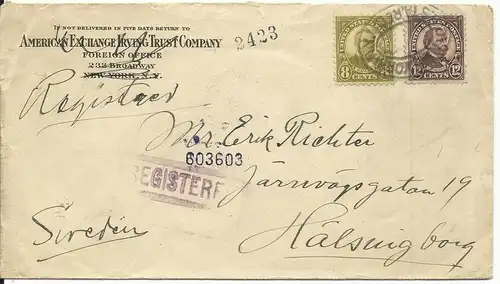 IF NOT DELIVERED IN FIVE DAYS RETURN TO
AMERICAN EXCHANGE IRVING TRUST COMPANY
FOREIGN OFFICE
233 BROADWAY
NEW YORK, N.Y.
2423
UNITED STATES POSTAGE
8 CENTS 8
UNITED STATES POSTAGE
12 CENTS 12
Registered
Mr. Erik Richter
603603
REGISTERE
Järnvägsgatan 19
Sweden
Hälsingborg